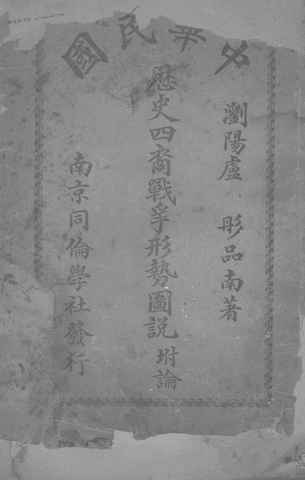 中華民國
瀏陽盧 彤品南著
歷史四裔戰爭形勢圖説坿論
南京同倫學社發行